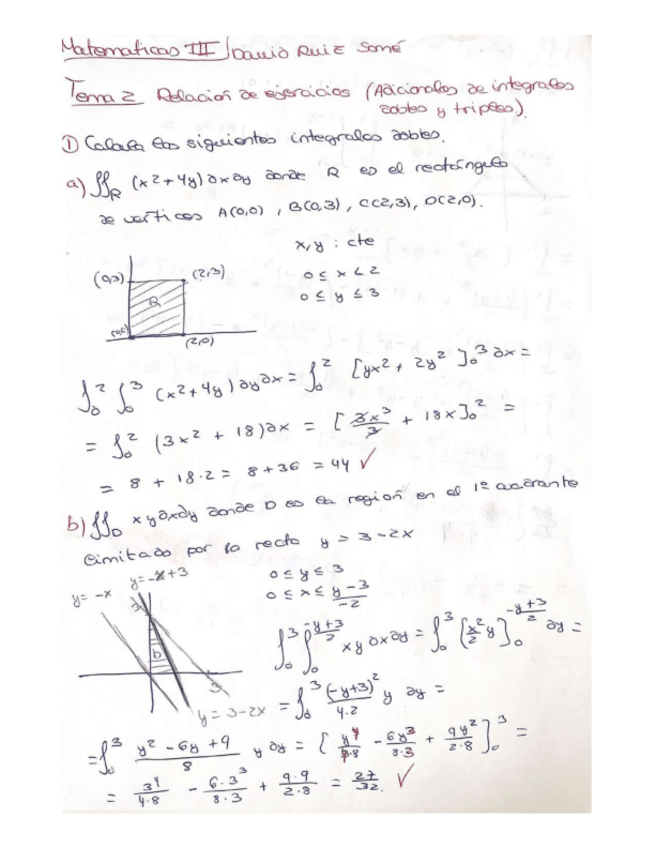 Matematicas III / David Ruiz Somé
Tema 2 Relación de ejercicios (Adicionales de integrales dobles y triples).
① Calcula las siguientes integrales dobles.
a) ∬R (x²+4y) dxdy donde R es el rectángulo
de vertices A(0,0), B(0,3), C(2,3), D(2,0).
x,y : cte
(0,3) (2,3) 0 ≤ x ≤ 2
R 0 ≤ y ≤ 3
(0,0) (2,0)
∫₀² ∫₀³ (x²+4y) dydx = ∫₀² [yx² + 2y²]₀³ dx =
= ∫₀² (3x² + 18)dx = [3x³/3 + 18x]₀² =
= 8 + 18·2 = 8+36 = 44 ✓
b) ∬D xydxdy donde D es la region en el 1º cuadrante
limitado por la recta y = 3-2x
y=-x+3 0 ≤ y ≤ 3
y=-x 0 ≤ x ≤ (y-3)/-2
3 D 3
∫₀³ ∫₀^((-y+3)/2) xy dxdy = ∫₀³ [x²/2 y]₀^((-y+3)/2) dy =
y = 3-2x = ∫₀³ (-y+3)²/4·2 y dy =
= ∫₀³ (y²-6y+9)/8 y dy = [y⁴/4·8 - 6y³/8·3 + 9y²/2·8]₀³ =
= 3⁴/4·8 - 6·3³/8·3 + 9·9/2·8 = 27/32. ✓